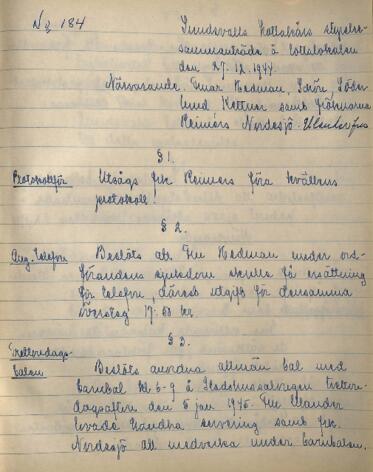 No 184
Sundsvalls Lottakårs styrelse-
sammanträde å lottalokalen
den 27.12.1944.
Närvarande: Fruar Hedman, Schöre, Söder-
lund Kettner samt fröknarna
Reimers Nordesjö.
§ 1.
Protokollför
Utsågs frk Reimers föra kvällens
protokoll.
§ 2.
Ang. telefon
Beslöts att Fru Hedman under ord-
förandens sjukdom skulle få ersättning
för telefon, därest utgift för densamma
överstag 17:50 kr.
§ 3.
Trettondags-
balen
Beslöts anordna allmän bal med
barnbal kl 6-9 å Stadshussalongen tretton-
dagsafton den 5 jan 1945. Fru Elander
lovade handha servering samt frk.
Nordesjö att medverka under barnbalen.